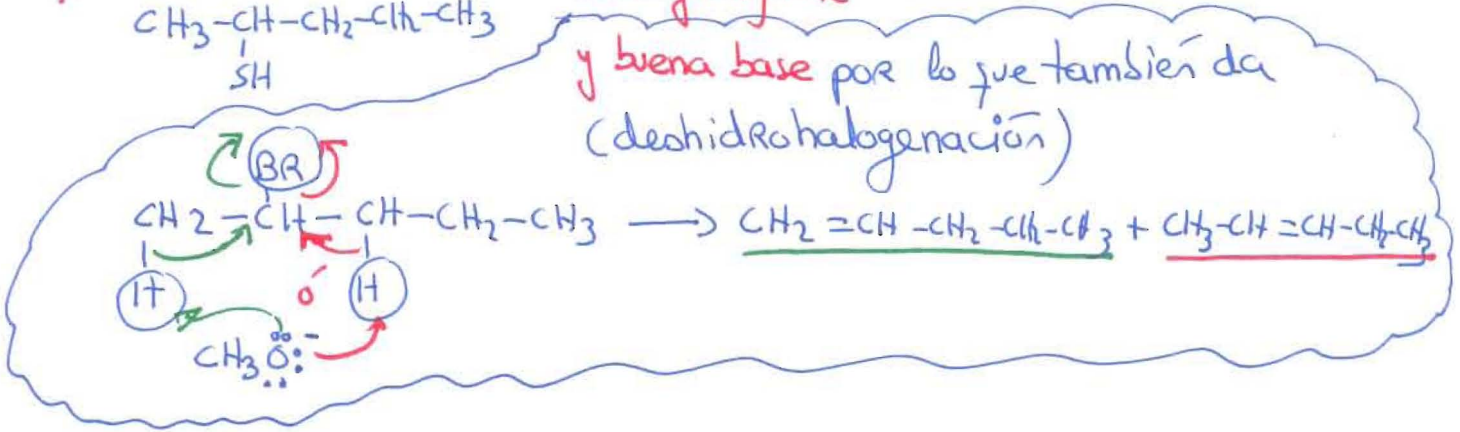 CH3-CH-CH2-CH2-CH3
SH
y buena base por lo que también da
(deshidrohalogenación)
BR
CH2-CH-CH-CH2-CH3 → CH2=CH-CH2-CH2-CH3 + CH3-CH=CH-CH2-CH3
H ó H
CH3Ö:⁻